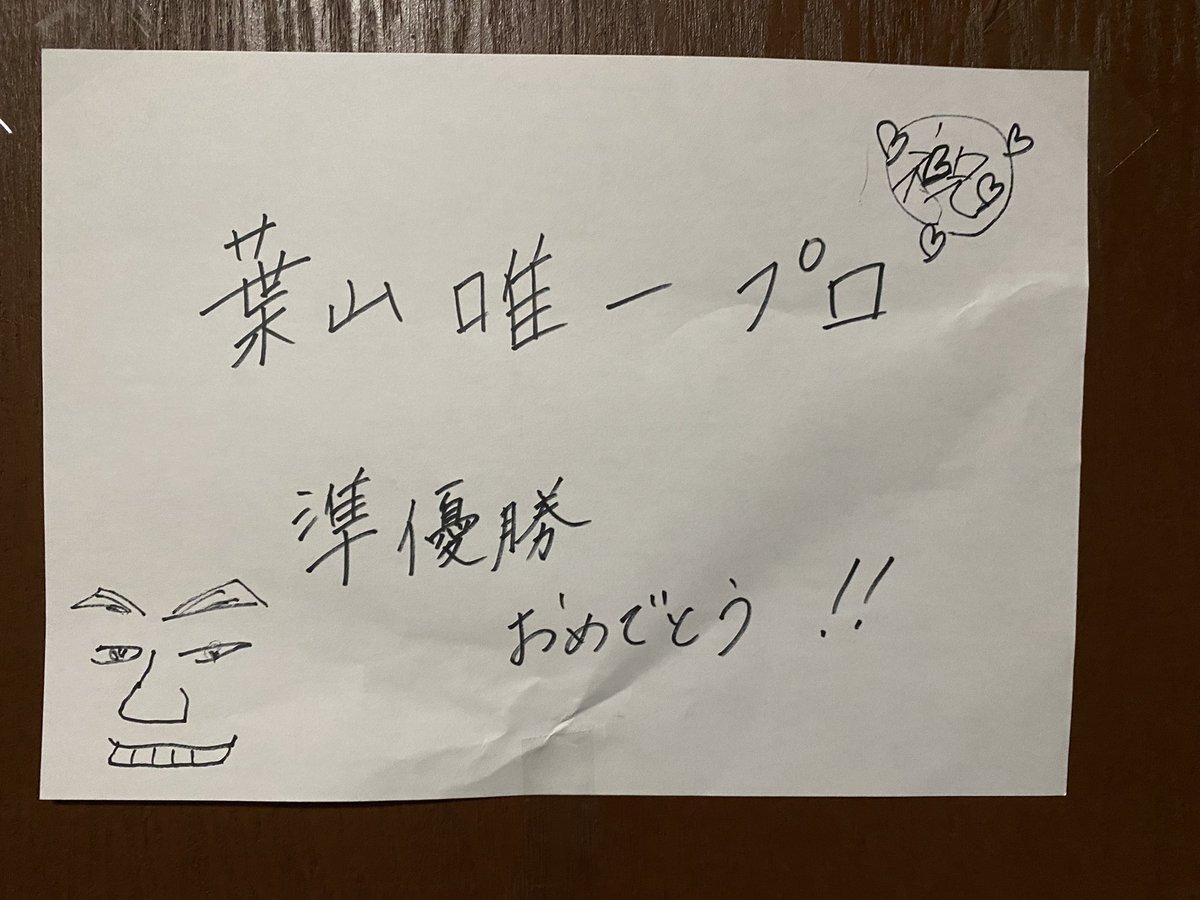 葉山唯一プロ
準優勝
おめでとう!!